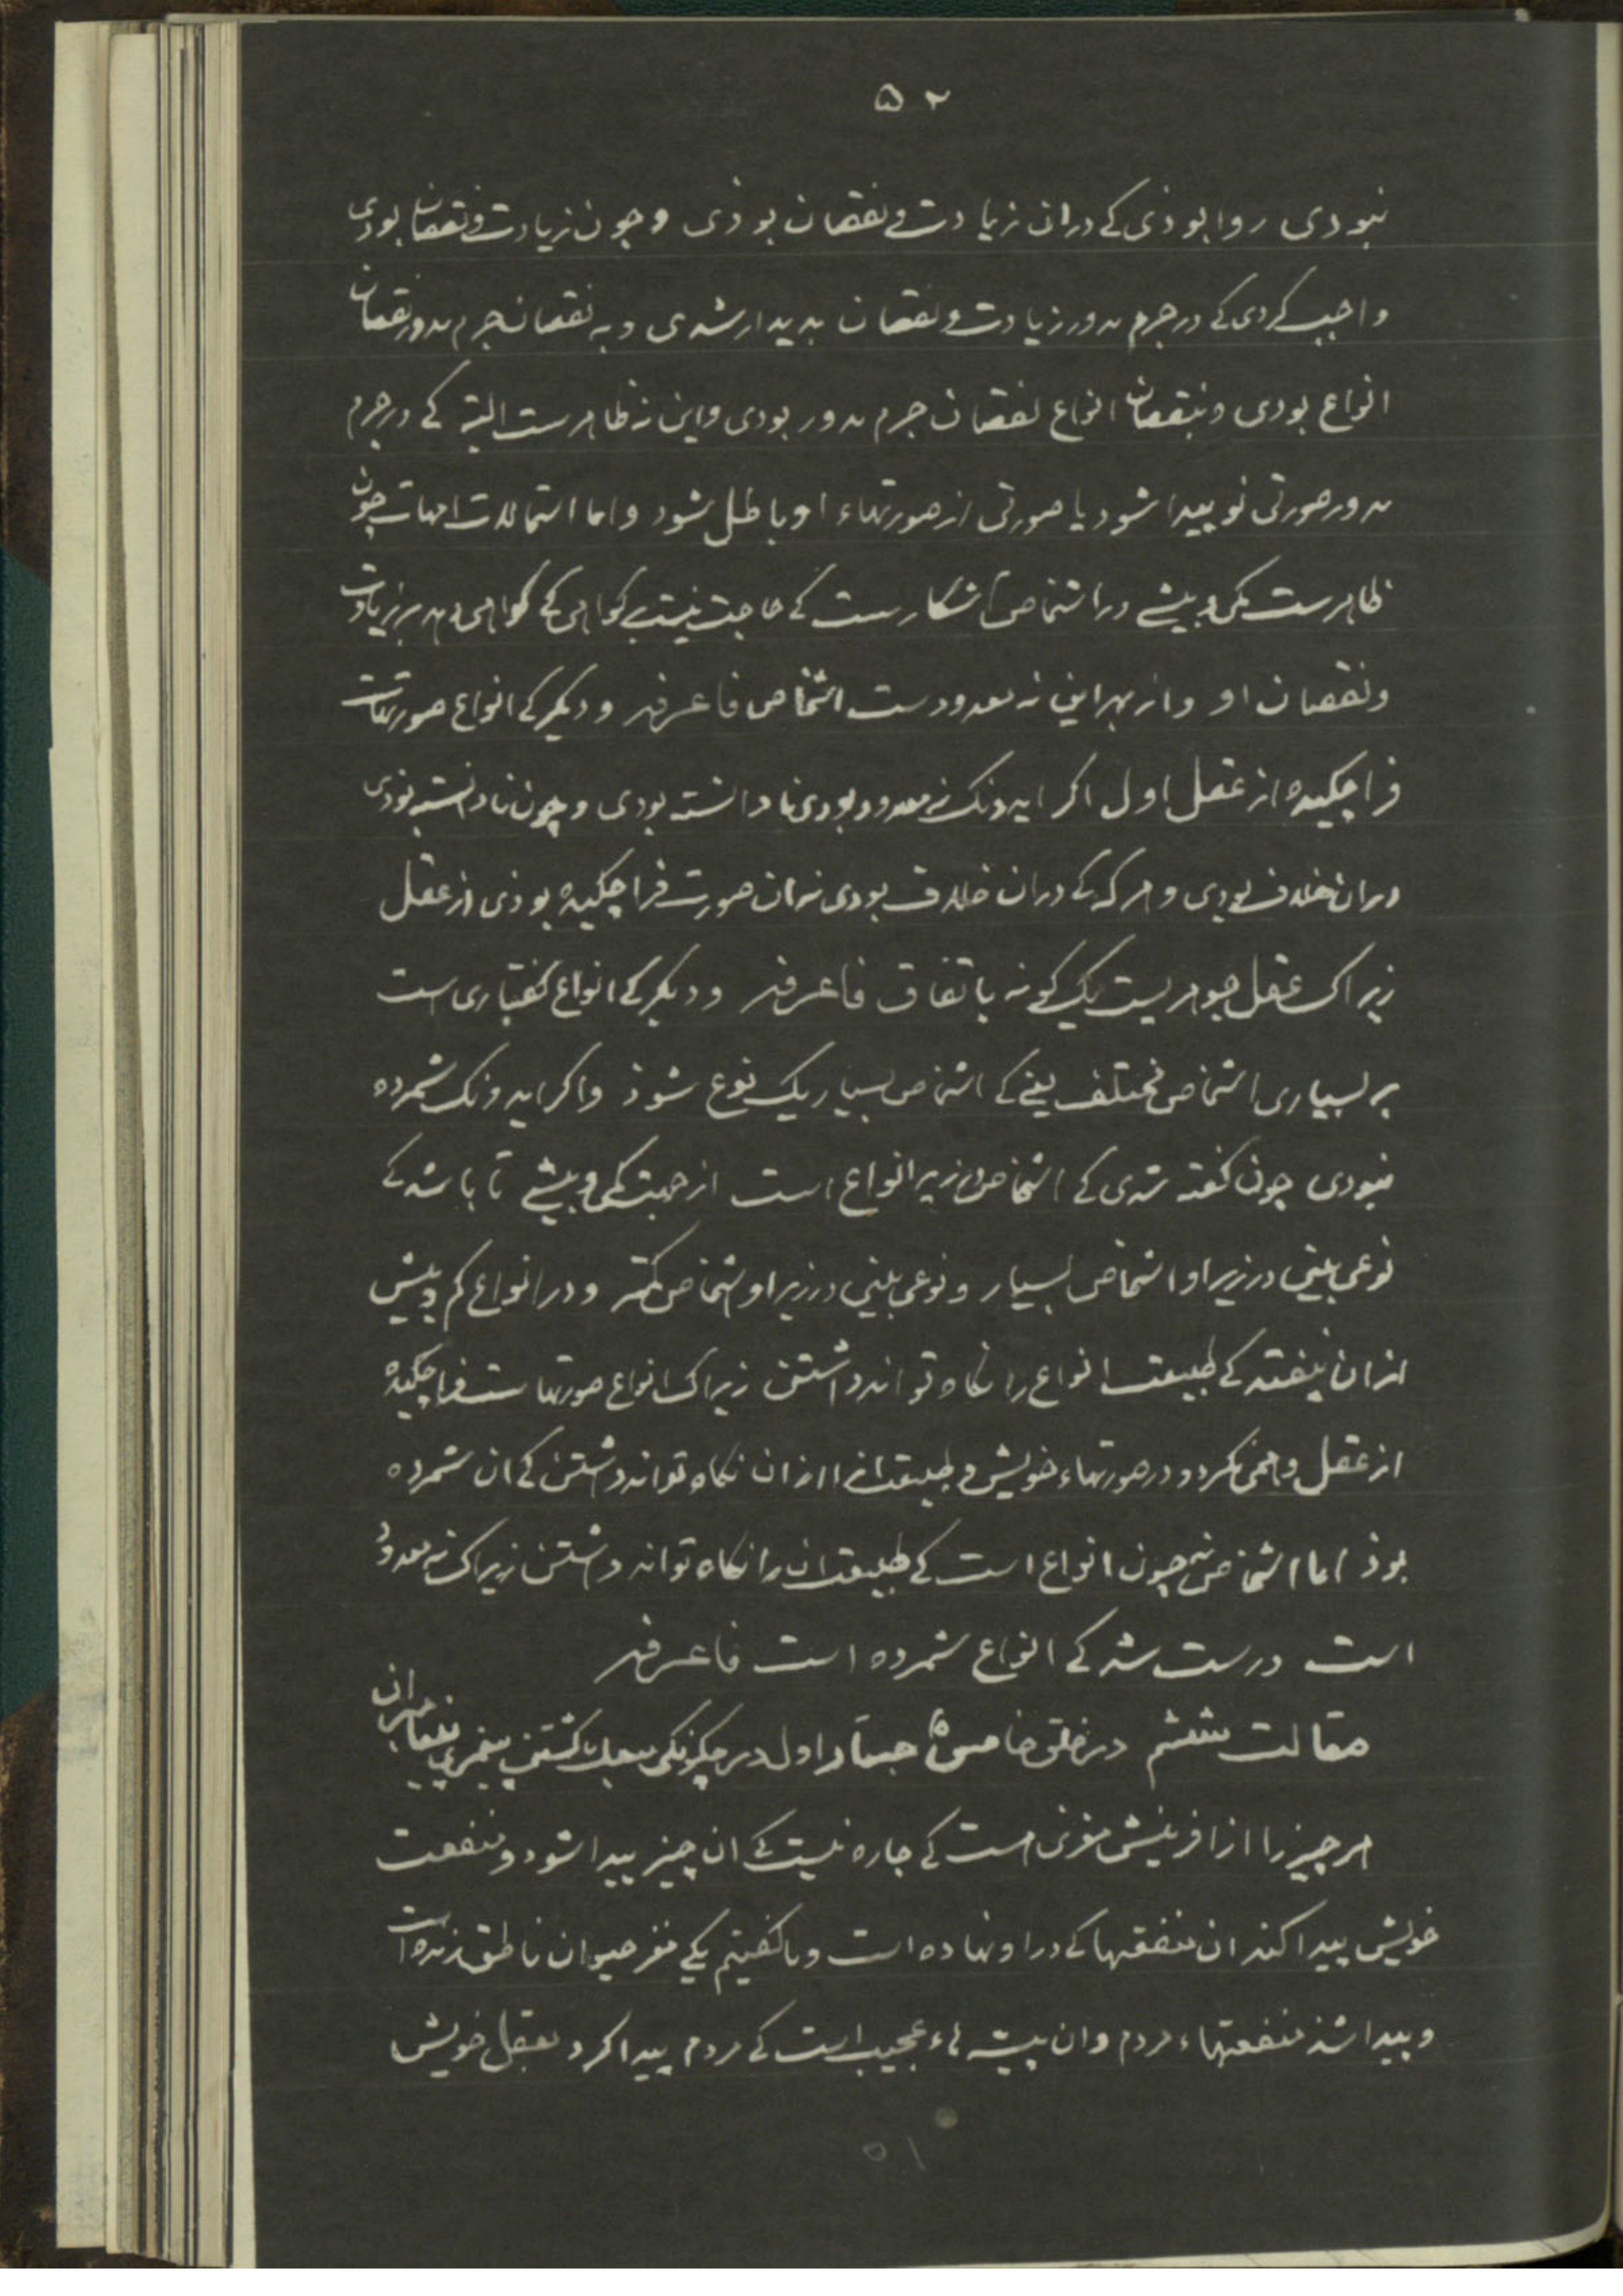 ۵۲
نبودی روا بوذی کے دران زیادت و نقصان بوذی و جون زیادت و نقصان بودی
واجب کردی کے در جرم مدور زیادت و نقصان بدیدار شدی و به نقصان جرم مدور نقصان
انواع بودی و بنقصان انواع نقصان جرم مدور بودی و این نه ظاهرست البته کے در جرم
مدور صورتی نو بیدا شود یا صورتی از صورتهاء او باطل شود و اما استحالت امهات چون
ظاهرست بکمی و بیشے در اشخاص آشکارست کے حاجت نیست بگواهی کے گواهی دهد بر زیادت
و نقصان او و از بهر این نه معدودست اشخاص فاعرفه و دیکر کے انواع صورتهاست
فرا چکیده از عقل اول اکر ایدونک نه معدود بودی نادانسته بودی و چون نادانسته بوذی
دران خلاف بودی و هرکه کے دران خلاف بودی نه ان صورت فراچکیده بوذی از عقل
زیراک عقل جوهریست یک گونه باتفاق فاعرفه و دیکر کے انواع گفتاری است
بر بسیاری اشخاص مختلف یعنے کے اشخاص بسیار یک نوع شوذ و اکر ایدونک شمرده
نبودی چون کفته شدی کے اشخاص در زیر انواع است از جهت کمی و بیشے تا باشد کے
نوعی بینی در زیر او اشخاص بسیار و نوعی بینی در زیر او اشخاص کمتر و در انواع کم و بیش
ازان نیفتد کے طبیعت انواع را نکاه تواند داشتن زیراک انواع صورتهاست فراچکیده
از عقل و همی نکردد در صورتهاء خویش و طبیعت انرا ازان نکاه تواند داشتن کے ان شمرده
بوذ اما اشخاص نه چون انواع است کے طبیعت ان را نکاه تواند داشتن زیراک نه معدود
است درست شد کے انواع شمرده است فاعرفه
مقالت ششم در خلق خامس جستار اول در چکونکی کشتن پیغمبری پیغامبران
هر چیز را از افرینش مغزی هست کے جاره نیست کے ان چیز پیدا شود و منفعت
خویش پیدا کند ان منفعتها کے در او نهاده است و ما کفتیم یکے مغز حیوان ناطق زنده است
و پیدا شذ منفعتهاء مردم و ان پیشه هاء عجیب است کے مردم پیدا کرد بعقل خویش
۵۱